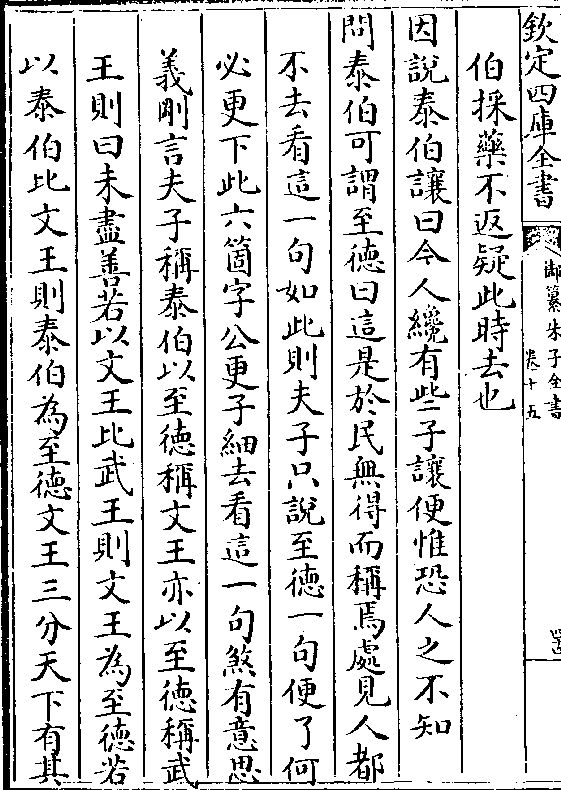 欽定四庫全書
御纂朱子全書
卷十五
伯採藥不返疑此時去也
因說泰伯讓曰今人纔有些子讓便惟恐人之不知
問泰伯可謂至德曰這是於民無得而稱焉處見人都
不去看這一句如此則夫子只說至德一句便了何
必更下此六箇字公更子細去看這一句煞有意思
義剛言夫子稱泰伯以至德稱文王亦以至德稱武
王則曰未盡善若以文王比武王則文王為至德若
以泰伯比文王則泰伯為至德文王三分天下有其